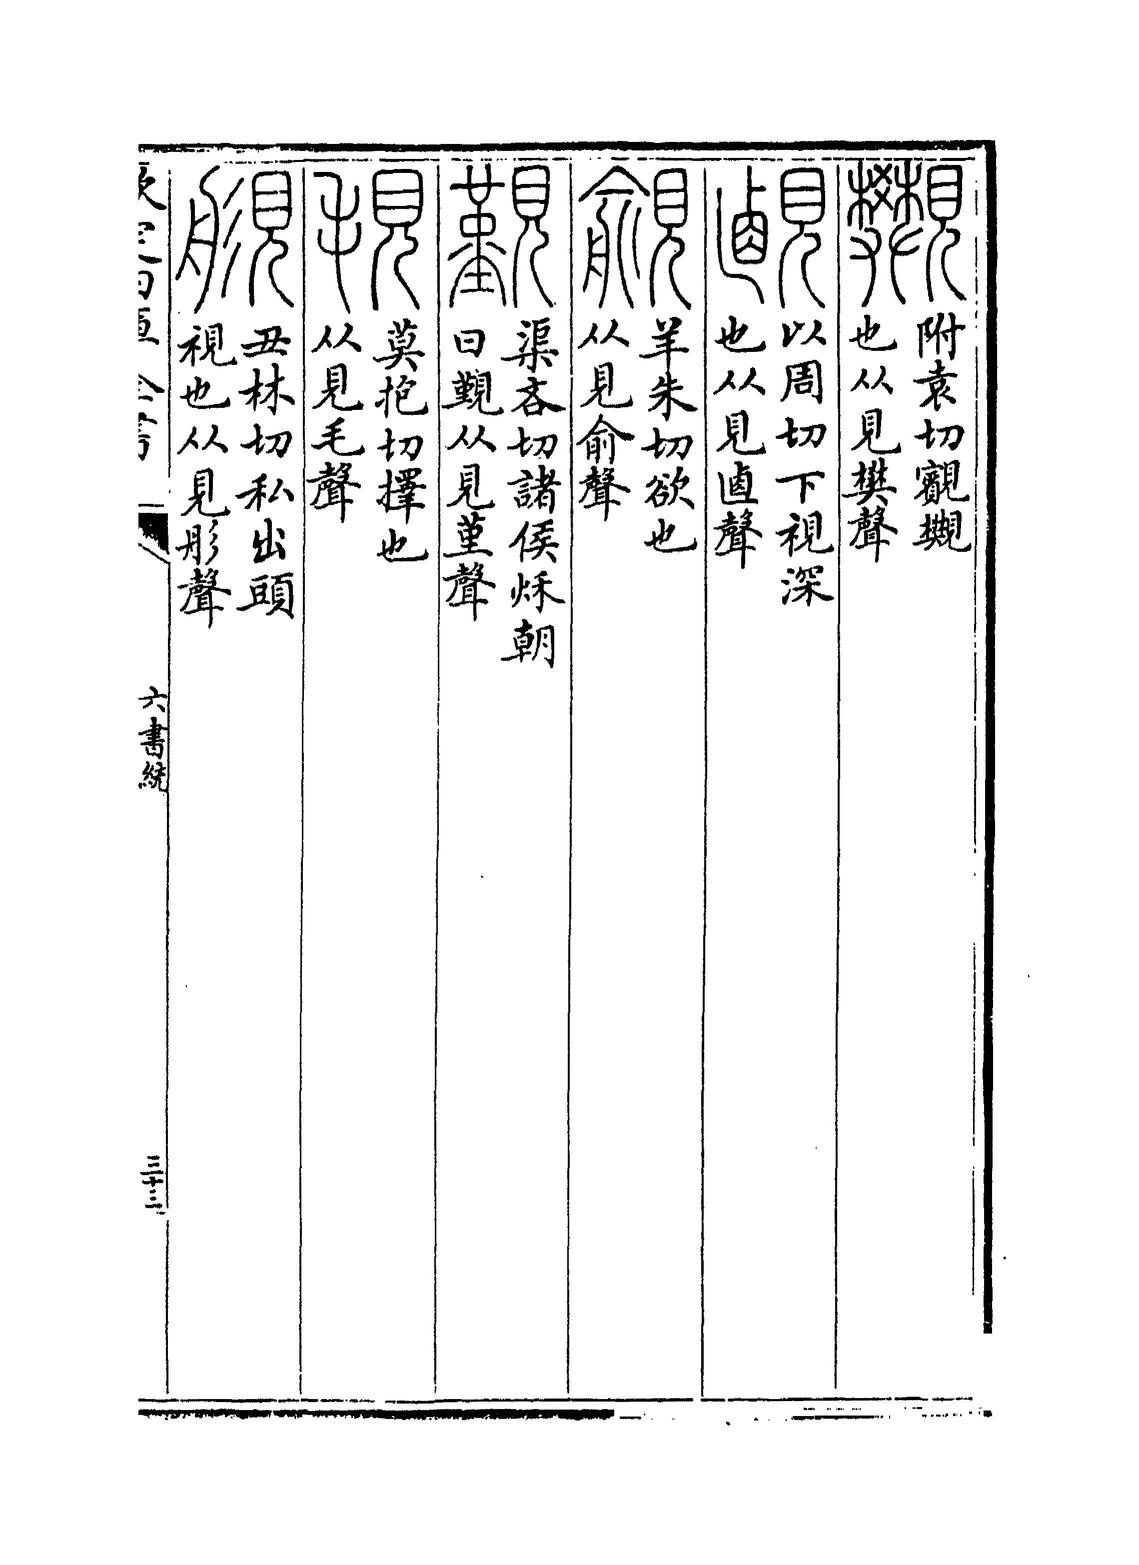 附袁切
也从見樊聲
以周切下視深
也从見卥聲
覦
羊朱切欲也
从見俞聲
覲
渠吝切諸侯秌朝
曰覲从見堇聲
覒
莫抱切擇也
从見毛聲
丑林切私出頭
視也从見彤聲
欽定四庫全書
六書統
三十三